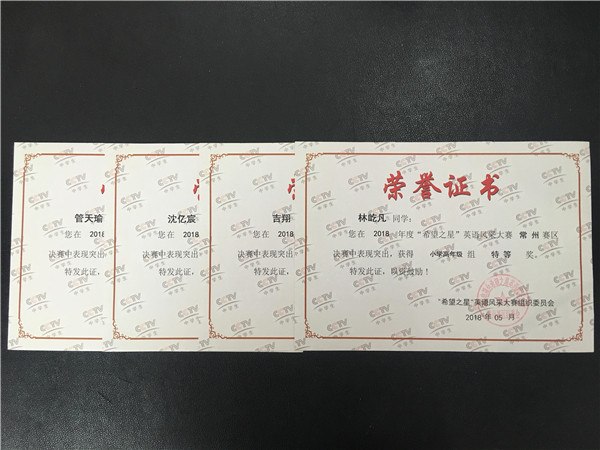 管天瑜
您在 2018
决赛中表现突出
特发此证，
沈亿宸
您在 2018
决赛中表现突出
特发此证，
吉翔
您在 2018
决赛中表现突出
特发此证，
荣誉证书
林屹凡 同学：
您在 2018 年度“希望之星”英语风采大赛 常州 赛区
决赛中表现突出，获得 小学高年级 组 特等 奖。
特发此证，以资鼓励！
“希望之星”英语风采大赛组织委员会
2018 年 05 月
CCTV
中学生